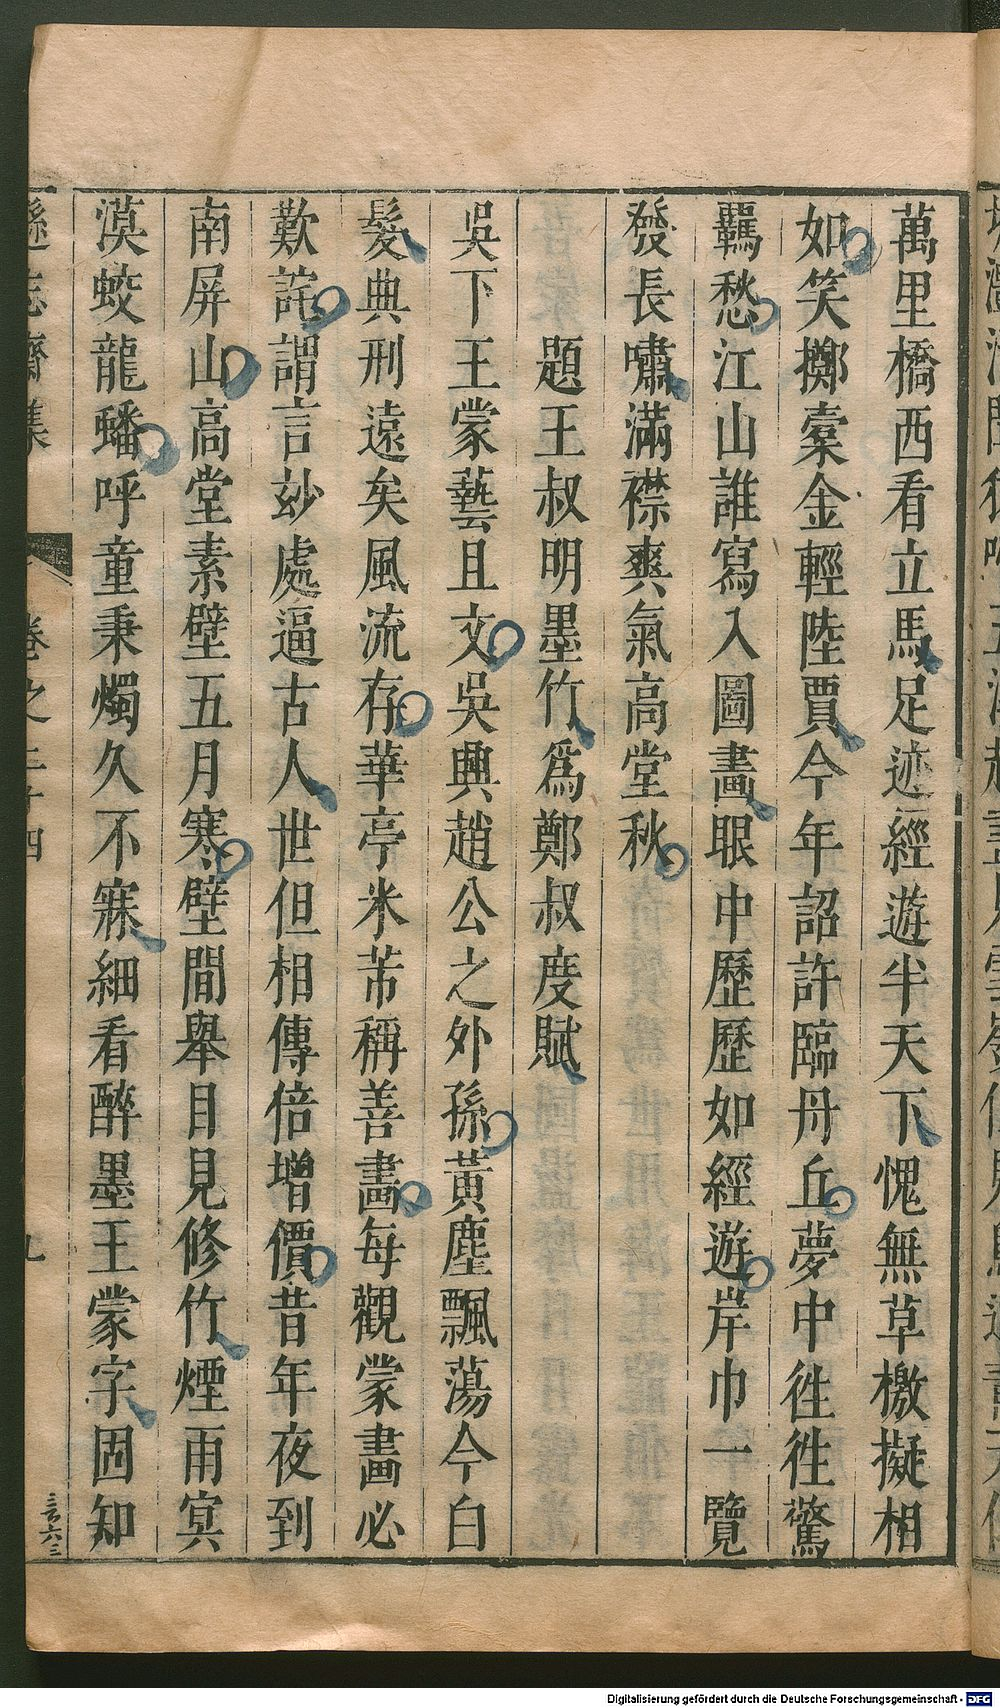 萬里橋西看立馬足迹經遊半天下愧無草檄擬相
如笑擲橐金輕陸賈今年詔許臨丹丘夢中徃徃驚
羈愁江山誰寫入圖畫眼中歷歷如經遊岸巾一覽
發長嘯滿襟爽氣高堂秋
題王叔明墨竹爲鄭叔度賦
吳下王蒙藝且文吳興趙公之外孫黃塵飄蕩今白
髮典刑遠矣風流存華亭米芾稱善畵每觀蒙畵必
歎詫謂言玅處逼古人世但相傳倍增價昔年夜到
南屏山高堂素壁五月寒壁間舉目見修竹煙雨冥
漠蛟龍蟠呼童秉燭久不寐細看醉墨王蒙字固知
遜志齋集
卷之二十四
九
言六三
Digitalisierung gefördert durch die Deutsche Forschungsgemeinschaft - DFG